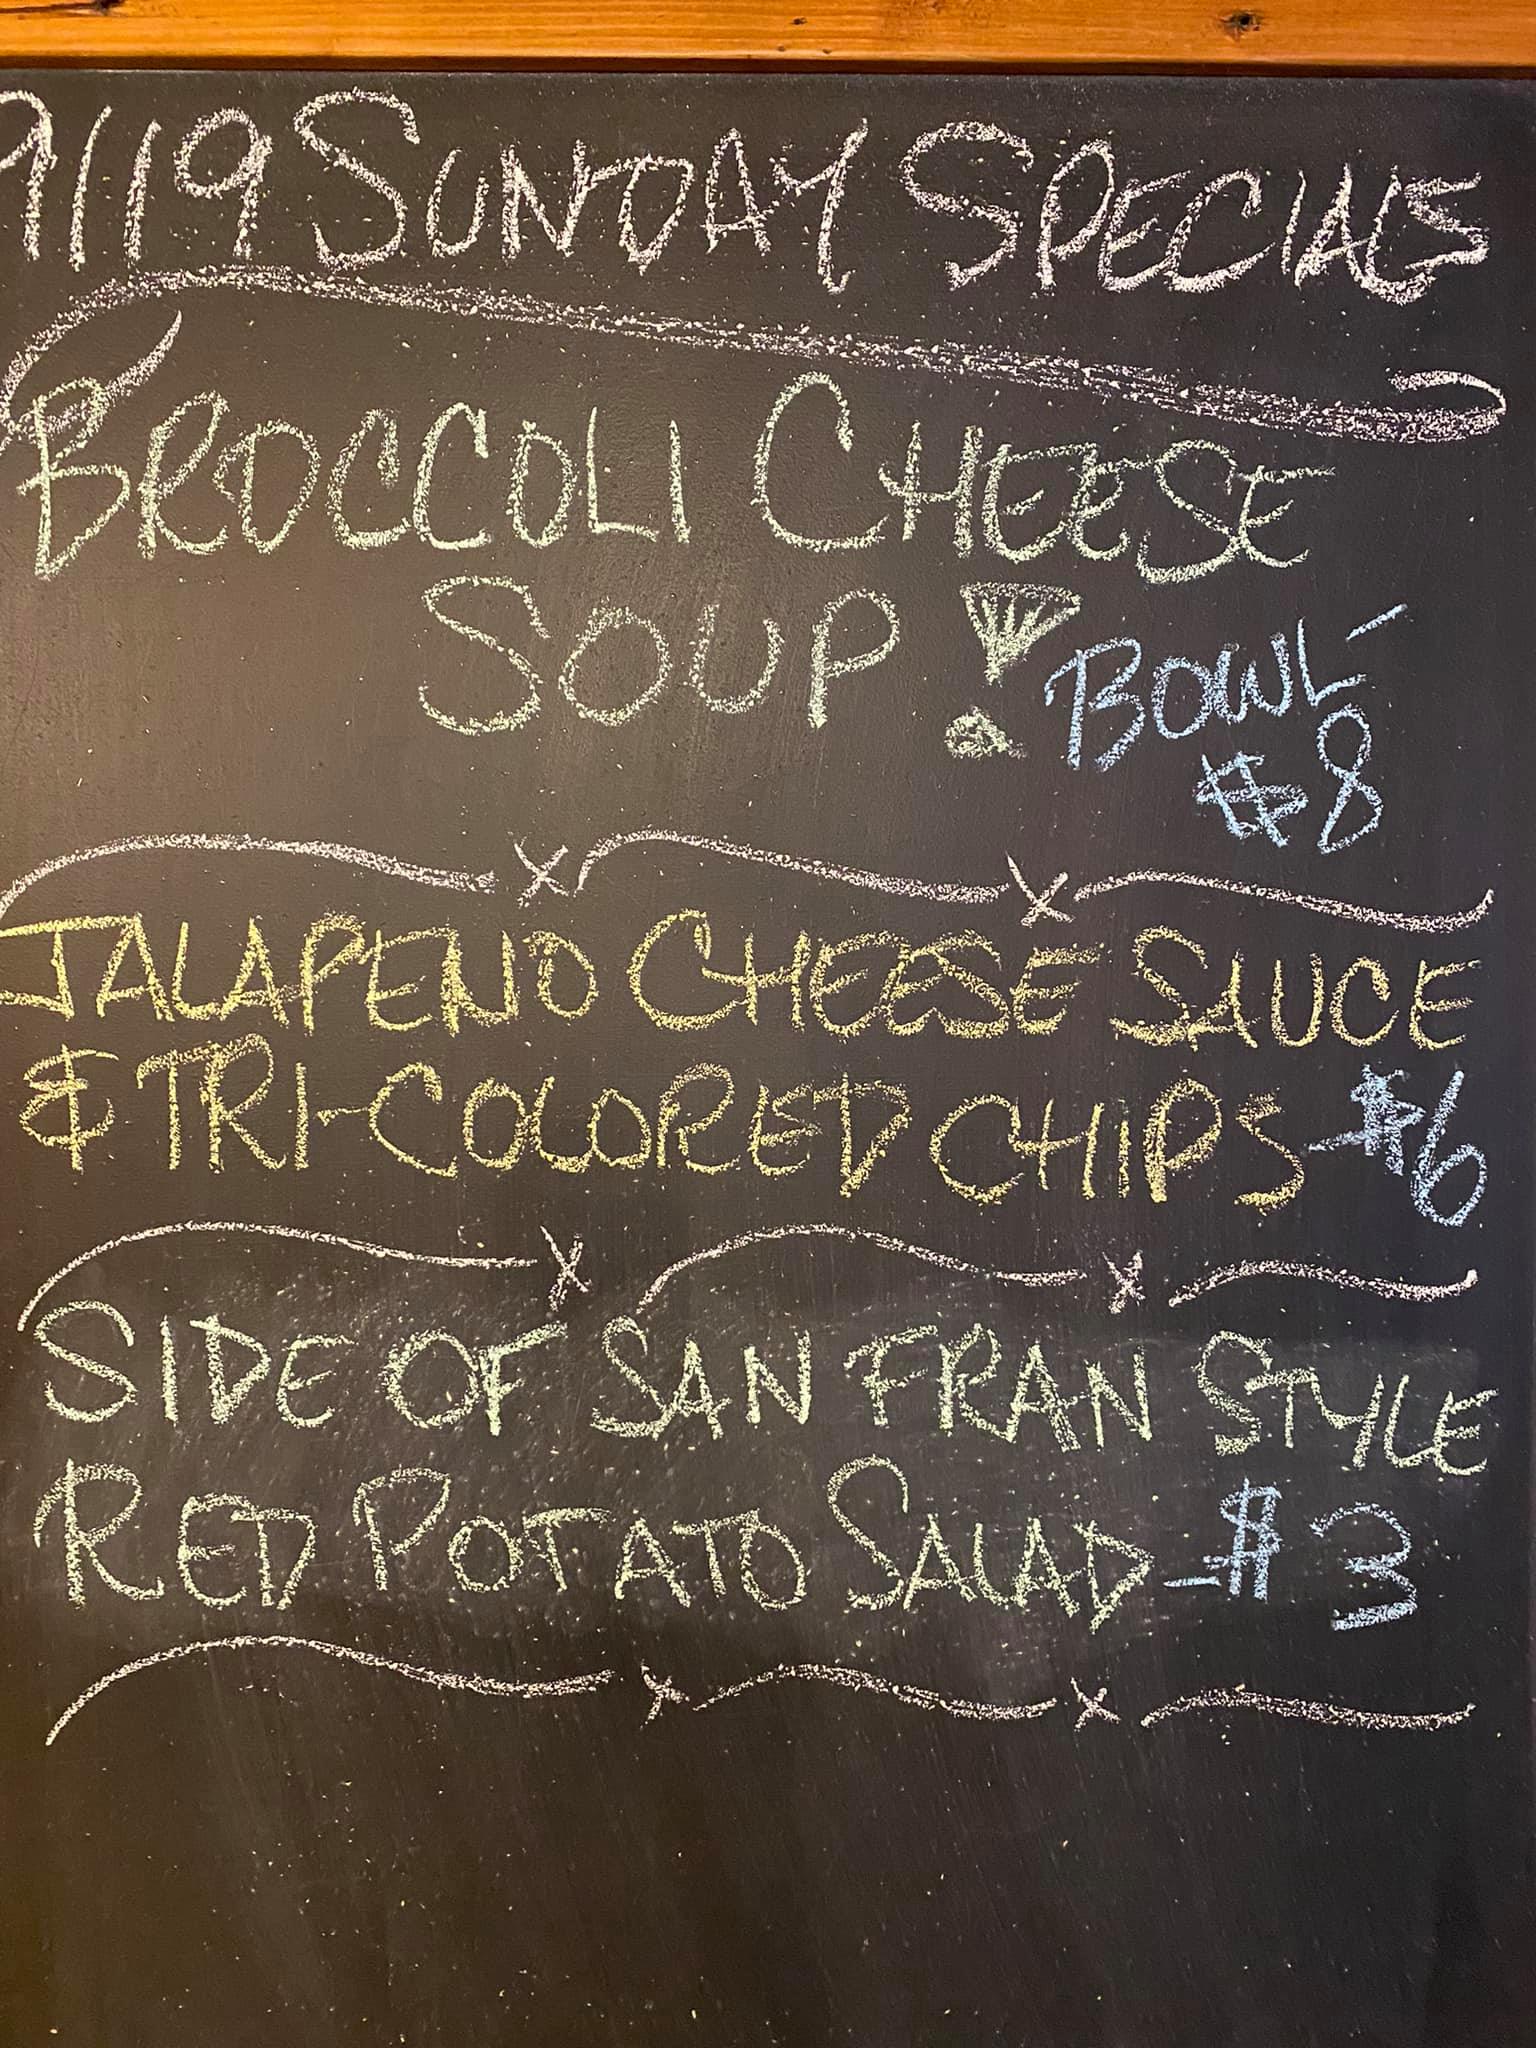 9/19 SUNDAY SPECIALS
BROCCOLI CHEESE
SOUP! BOWL-
$8
JALAPENO CHEESE SAUCE
& TRI-COLORED CHIPS-$6
SIDE OF SAN FRAN STYLE
RED POTATO SALAD-$3